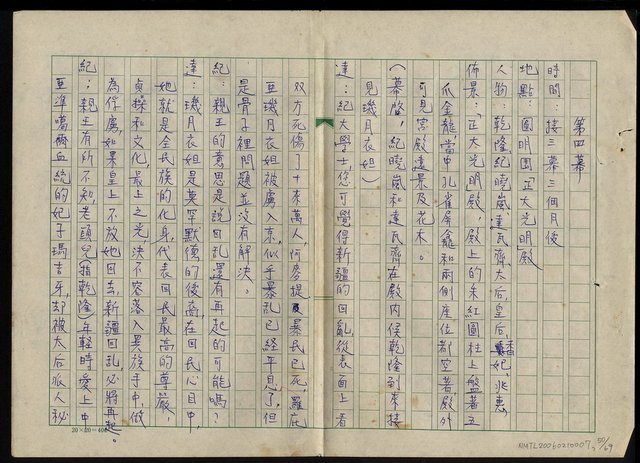 第四幕
時間：接三幕三個月後
地點：圓明園「正大光明殿」
人物：乾隆、紀曉嵐、達瓦齊、太后、皇后、香妃、兆惠、
佈景：「正大光明殿」殿上的朱紅圓柱上盤著五
爪金龍當中孔雀屏龕和兩側座位都空著，殿外
可見宮殿遠景及花木。
（幕啓，紀曉嵐和達瓦齊在殿內候乾隆到來接
見璣月衣妲）
達：紀大學士，您可覺得新疆的回亂，後表面上看
双方死傷了十來萬人，阿麥提暴民已死，羅庇
亞璣月衣妲被虜入京，似乎暴亂已經平息了，但
是骨子裡問題並没有解決。
紀：親王的意思是說回亂還有再起的可能嗎？
達：璣月衣妲是莫罕默德的後裔，在回民心目中，
她就是全民族的化身，代表回民最高的尊嚴，
貞操和文化，最上之光，決不容落入異族手中，做
為俘虜，如果皇上不放她回去，新疆回乱，必將再起。
紀：親王有所不知，老頭兒（指乾隆）年輕時愛上中
亞準噶爾血統的妃子瑪吉牙，却被太后派人秘
20×20=400
NMTL20060210007, 50/69